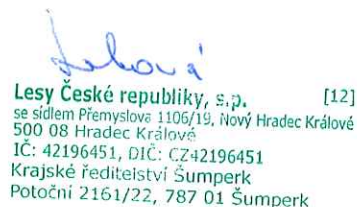 Lesy České republiky, s.p. [12]
se sídlem Přemyslova 1106/19, Nový Hradec Králové
500 08 Hradec Králové
IČ: 42196451, DIČ: CZ42196451
Krajské ředitelství Šumperk
Potoční 2161/22, 787 01 Šumperk